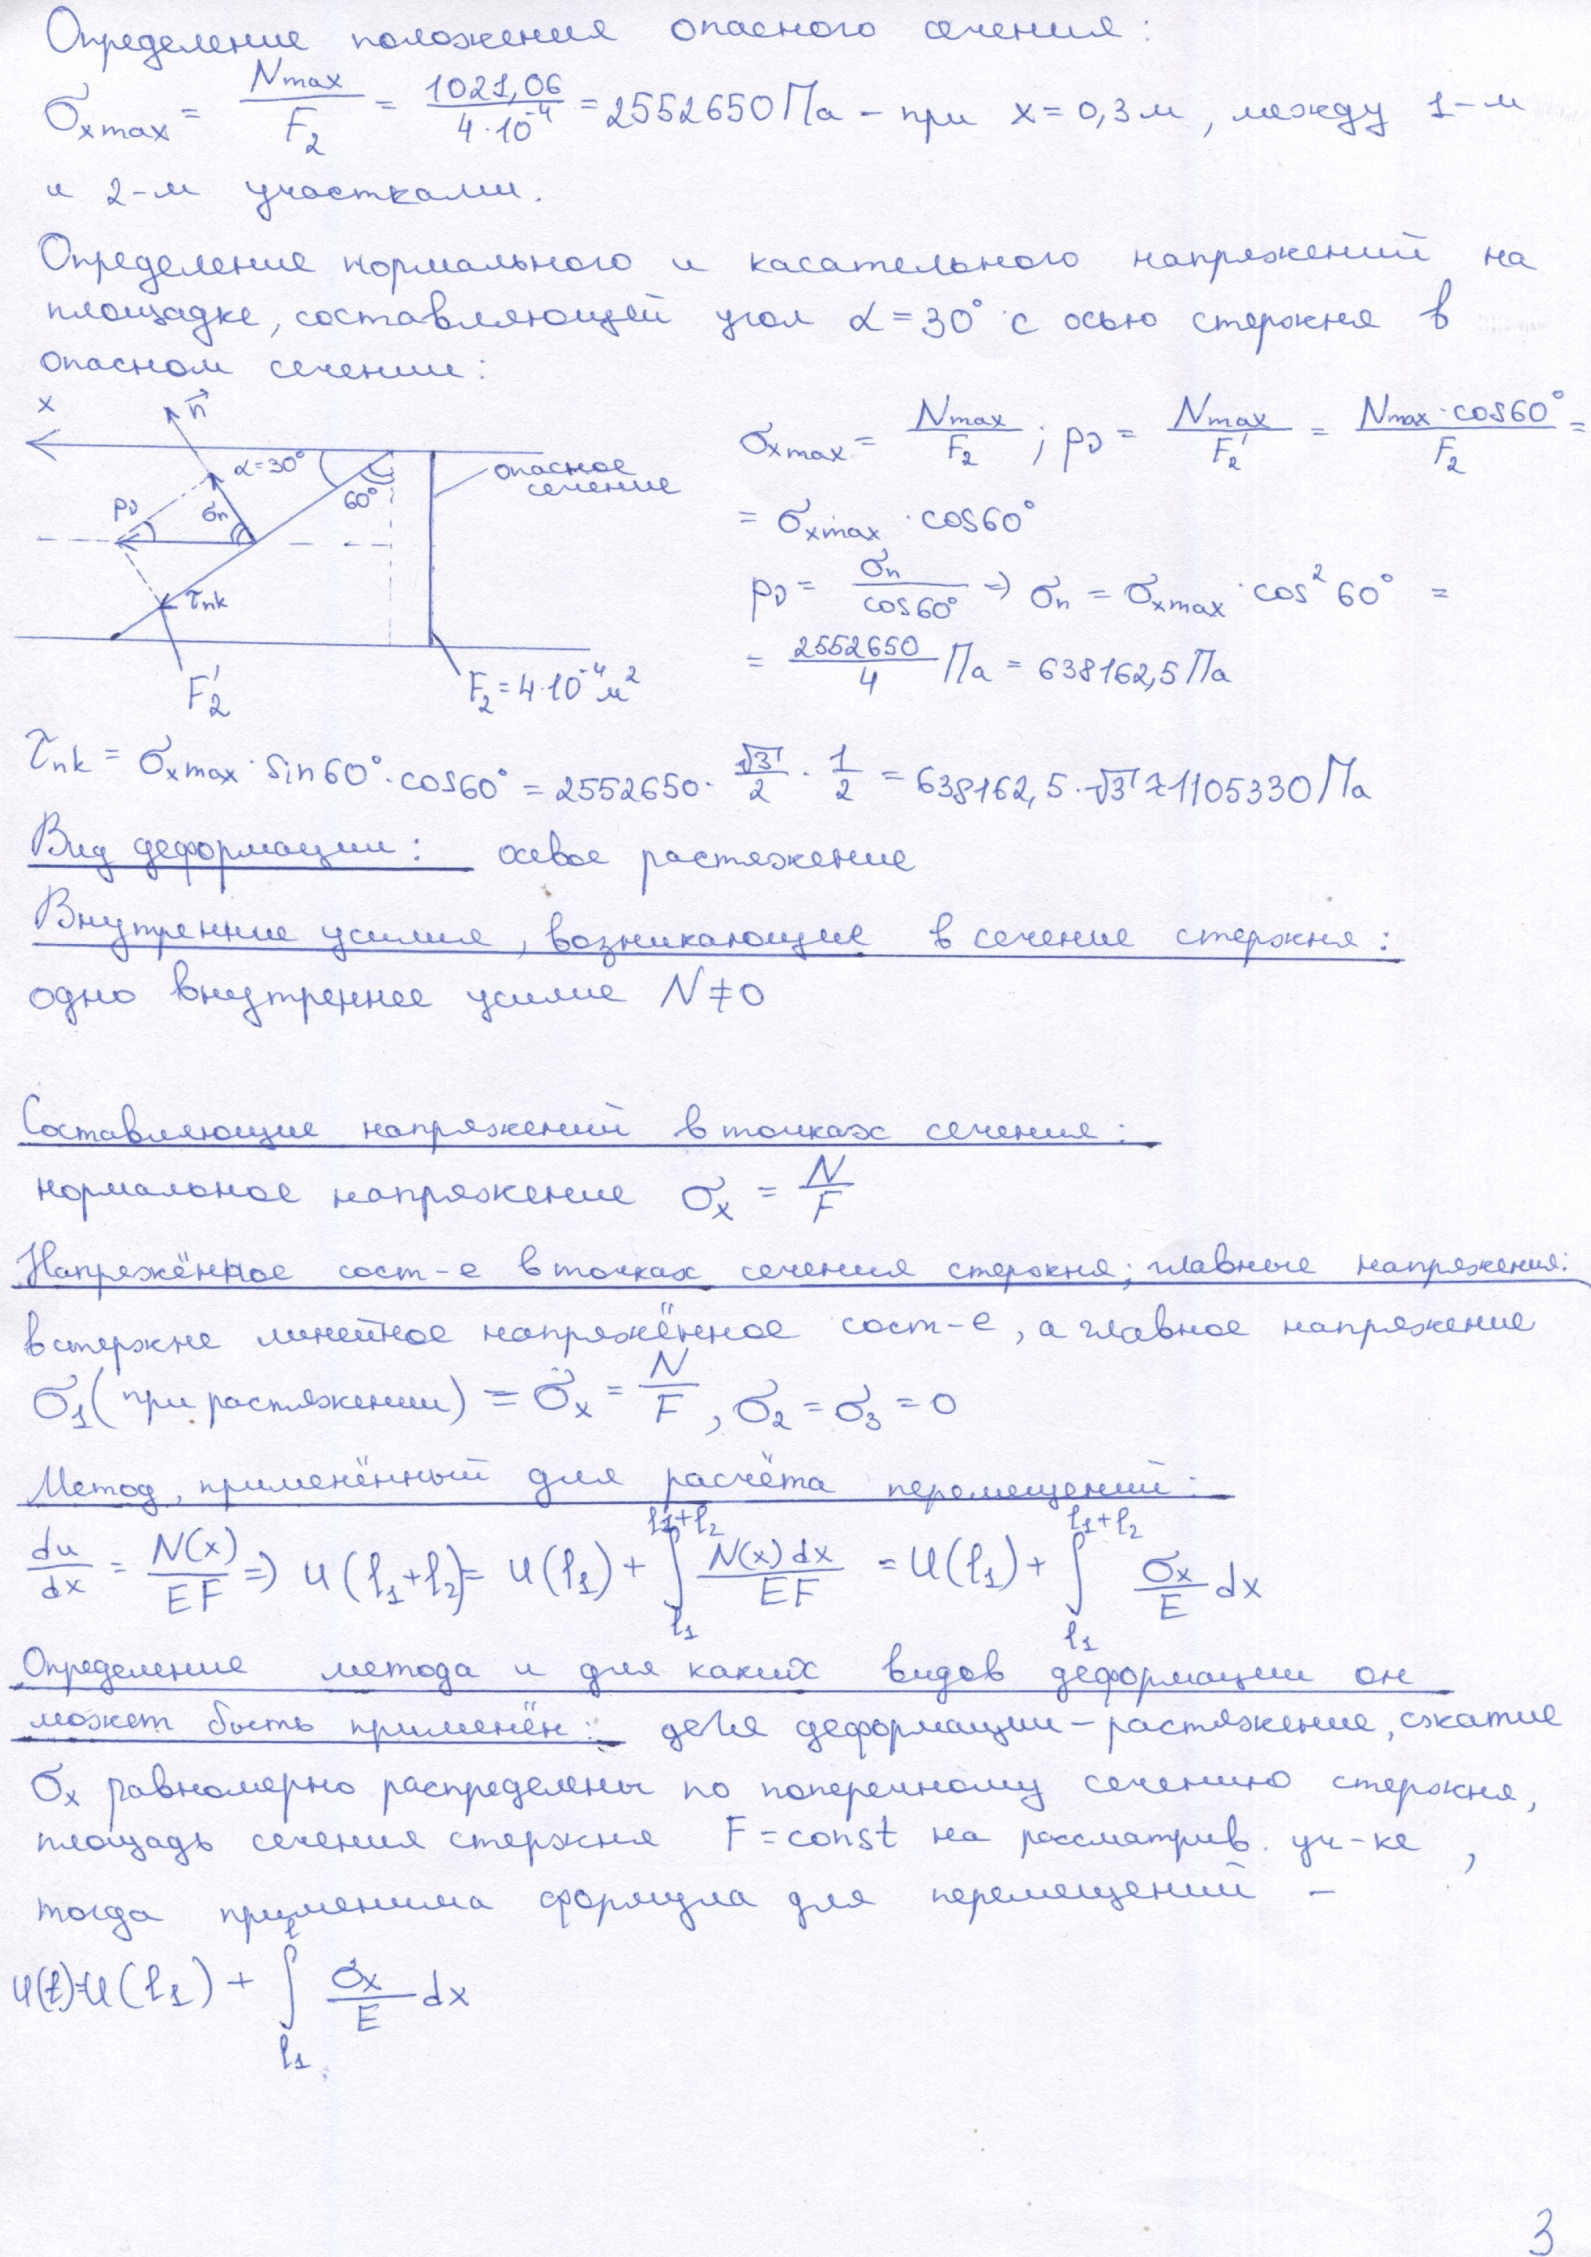 Определение положения опасного сечения:
σx max = Nmax / F2 = 1021,06 / 4·10^-4 = 2552650 Па – при x = 0,3 м, между 1-м
и 2-м участками.
Определение нормального и касательного напряжений на
площадке, составляющей угол α = 30° с осью стержня в
опасном сечении:
x
n
α=30°
60°
pν
σn
τnk
опасное
сечение
F2'
F2 = 4·10^-4 м²
σx max = Nmax / F2 ; pν = Nmax / F2' = Nmax · cos60° / F2 =
= σx max · cos60°
pν = σn / cos60° => σn = σx max · cos² 60° =
= 2552650 / 4 Па = 638162,5 Па
τnk = σx max · sin60° · cos60° = 2552650 · √3/2 · 1/2 = 638162,5 · √3 ≈ 1105330 Па
Вид деформации: осевое растяжение
Внутренние усилия, возникающие в сечение стержня:
одно внутреннее усилие N ≠ 0
Составляющие напряжений в точках сечения:
нормальное напряжение σx = N / F
Напряжённое сост-е в точках сечения стержня; главные напряжения:
в стержне линейное напряжённое сост-е, а главное напряжение
σ1 (при растяжении) = σx = N / F, σ2 = σ3 = 0
Метод, применённый для расчёта перемещений:
du/dx = N(x) / EF => u(l1+l2) = u(l1) + ∫_{l1}^{l1+l2} N(x)dx / EF = u(l1) + ∫_{l1}^{l1+l2} σx / E dx
Определение метода и для каких видов деформации он
может быть применён: для деформации – растяжение, сжатие
σx равномерно распределены по поперечному сечению стержня,
площадь сечения стержня F = const на рассматрив. уч-ке,
тогда применима формула для перемещений –
u(l) = u(l1) + ∫_{l1}^{l} σx / E dx
3